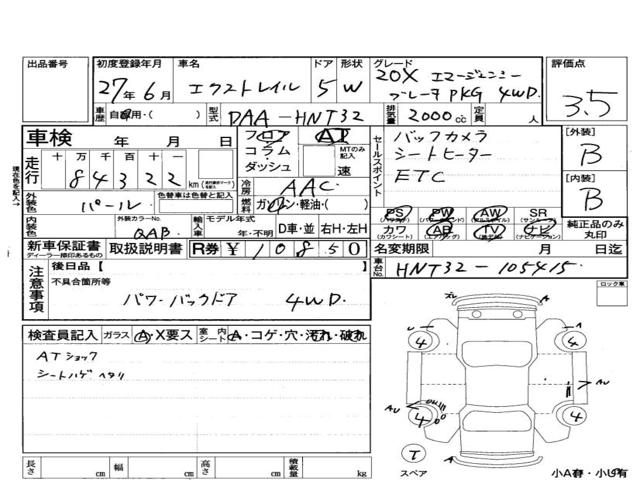 出品番号 初度登録年月 車名 ドア 形状 グレード 評価点
27年6月 エクストレイル 5 W 20X エマージェンシー
ブレーキPKG 4WD 3.5
車歴 自家用・( ) 型式 DAA-HNT32 排気量 2000cc 定員 人
車検 年 月 日 フロア AT セールスポイント バックカメラ [外装]
走行 十万千百十一 コラム MTのみ記入 シートヒーター B
84322 km ダッシュ 速 ETC [内装]
冷房 AAC B
外装色 パール 色替車は色替と記入 燃料 ガソリン・軽油・( ) PS PW AW SR
内装色 外装カラーNo. QAB 輸入車 モデル年式 年・不明 D車・並 右H・左H カワ AB TV ナビ 純正品のみ丸印
新車保証書 取扱説明書 R券 ¥10850 名変期限 月 日迄
ディーラー捺印あるもの
車台No. HNT32-105415
注意事項 後日品【 】 ロック車
不具合箇所等
パワーバックドア 4WD.
検査員記入 ガラス A・X要ス 室内シート A・コゲ・穴・汚れ・破れ
ATショック
シートハゲ ヘタリ
A
4 4
AU
AU
4 4
T
スペア 小A有・小U有
長さ cm 幅 cm 高さ cm 積載量 kg